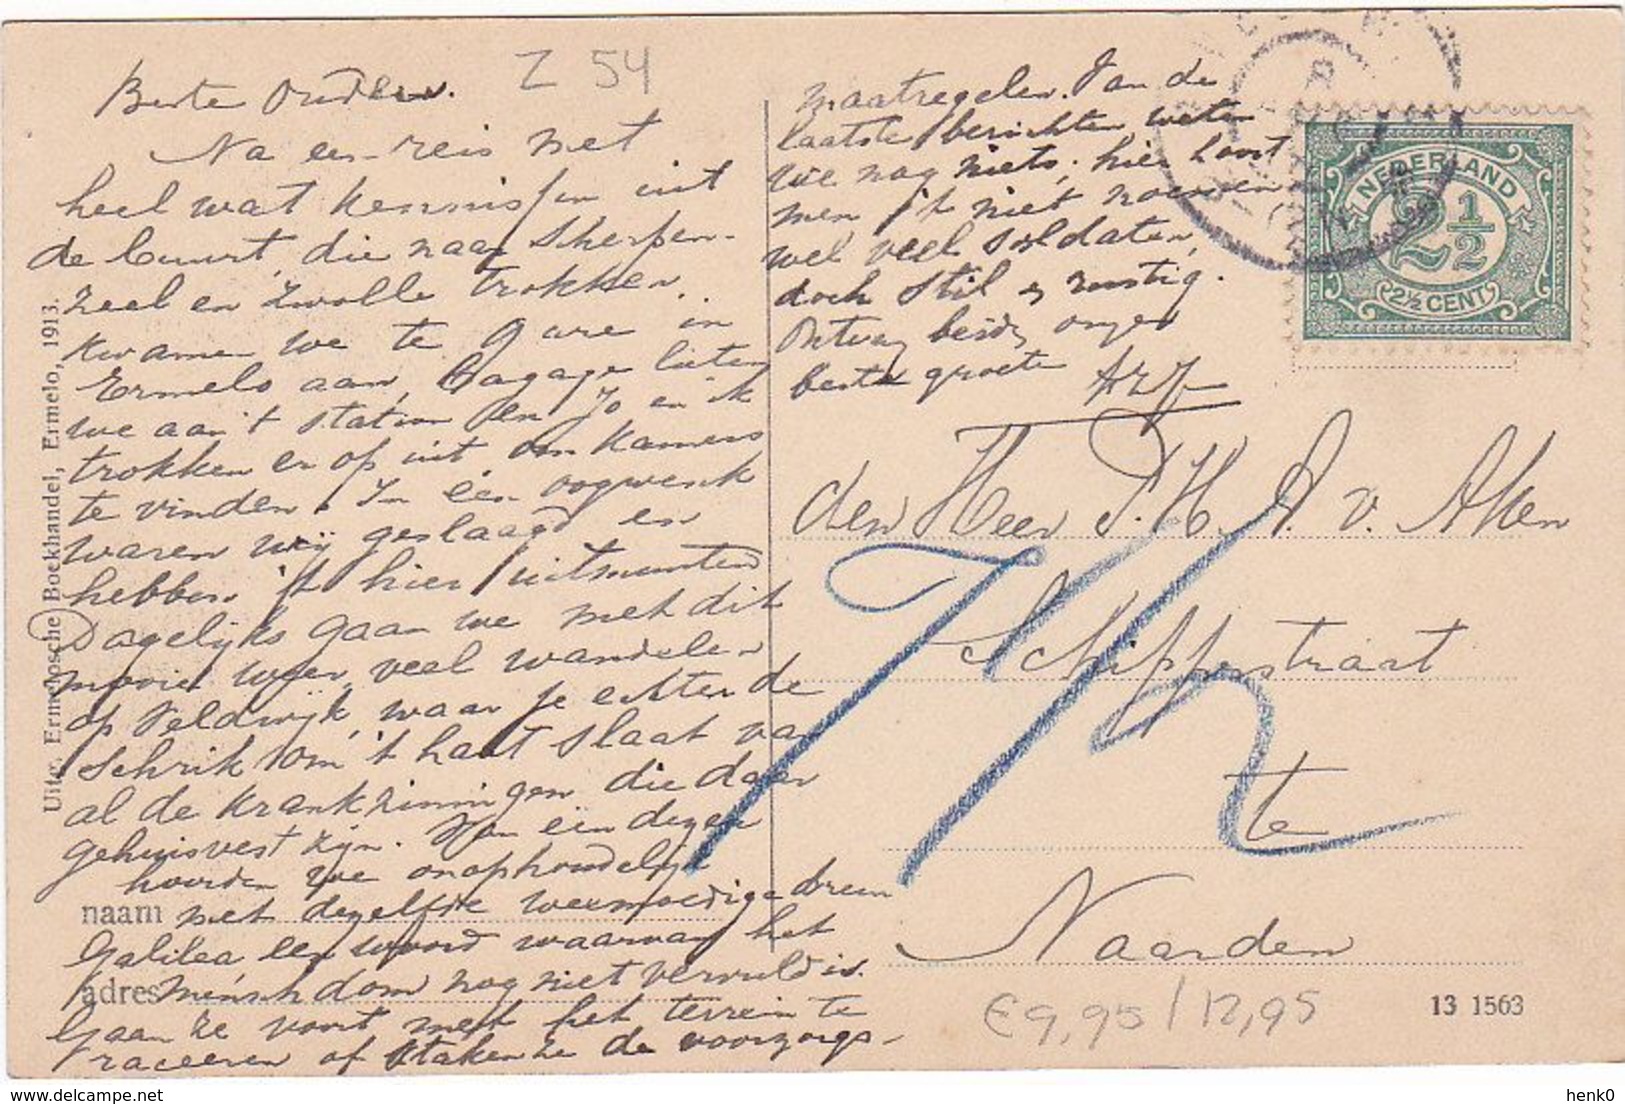 Z 54
Beste Ouders.
Na een reis met
heel wat kennissen uit
de buurt, die naar Scherpen-
zeel en Zwolle trokken,
kwamen we te gare in
Ermelo aan, bagage lieten
we aan 't station en Jo en ik
trokken er op uit om kamers
te vinden. In een oogwenk
waren wij geslaagd en
hebben 't hier uitmuntend
Dagelijks gaan we met dit
mooie weer veel wandelen
op Veldwijk, waar je echter de
schrik om 't hart slaat van
al de krankzinnigen die daar
gehuisvest zijn. Van een dezer
hoorden we onophoudelijk
met dezelfde weemoedige dreun
Galilea een woord waarvan het
menschdom nog niet vervuld is.
Gaan ze voort met het terrein te
traceeren of staken ze de voorzorgs-
maatregelen. Van de
laatste berichten weten
we nog niets, hier hoort
men 't niet noemen
wel veel soldaten,
doch stil & rustig.
Ontvang beide onzer
beste groeten
NEDERLAND
2 1/2
2½ CENT
den Heer P. H. A. v. Aken
Schippersstraat
te
Naarden
naam
adres
€9,95 / 12,95
13 1563
Uitg. Ermelosche Boekhandel, Ermelo, 1913.
henk0